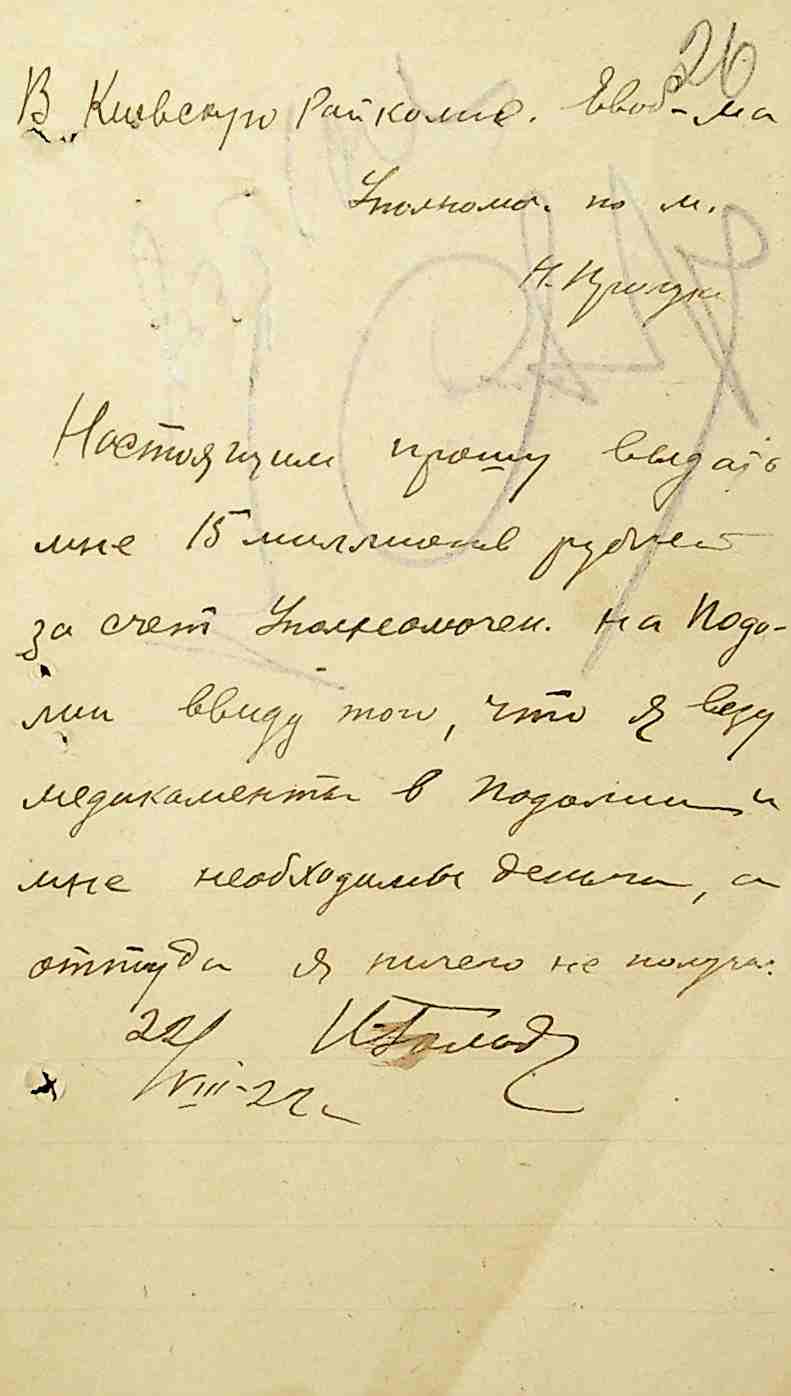 26
В Киевскую Райкомис. Евоб-ма
Уполномоч. по м.
Н.
Настоящим прошу выдать
мне 15 миллионов рублей
за счет Уполномочен. на Подо-
лии ввиду того, что я везу
медикаменты в Подолию и
мне необходимы деньги, а
оттуда я ничего не получ.
22/VIII-22 г.